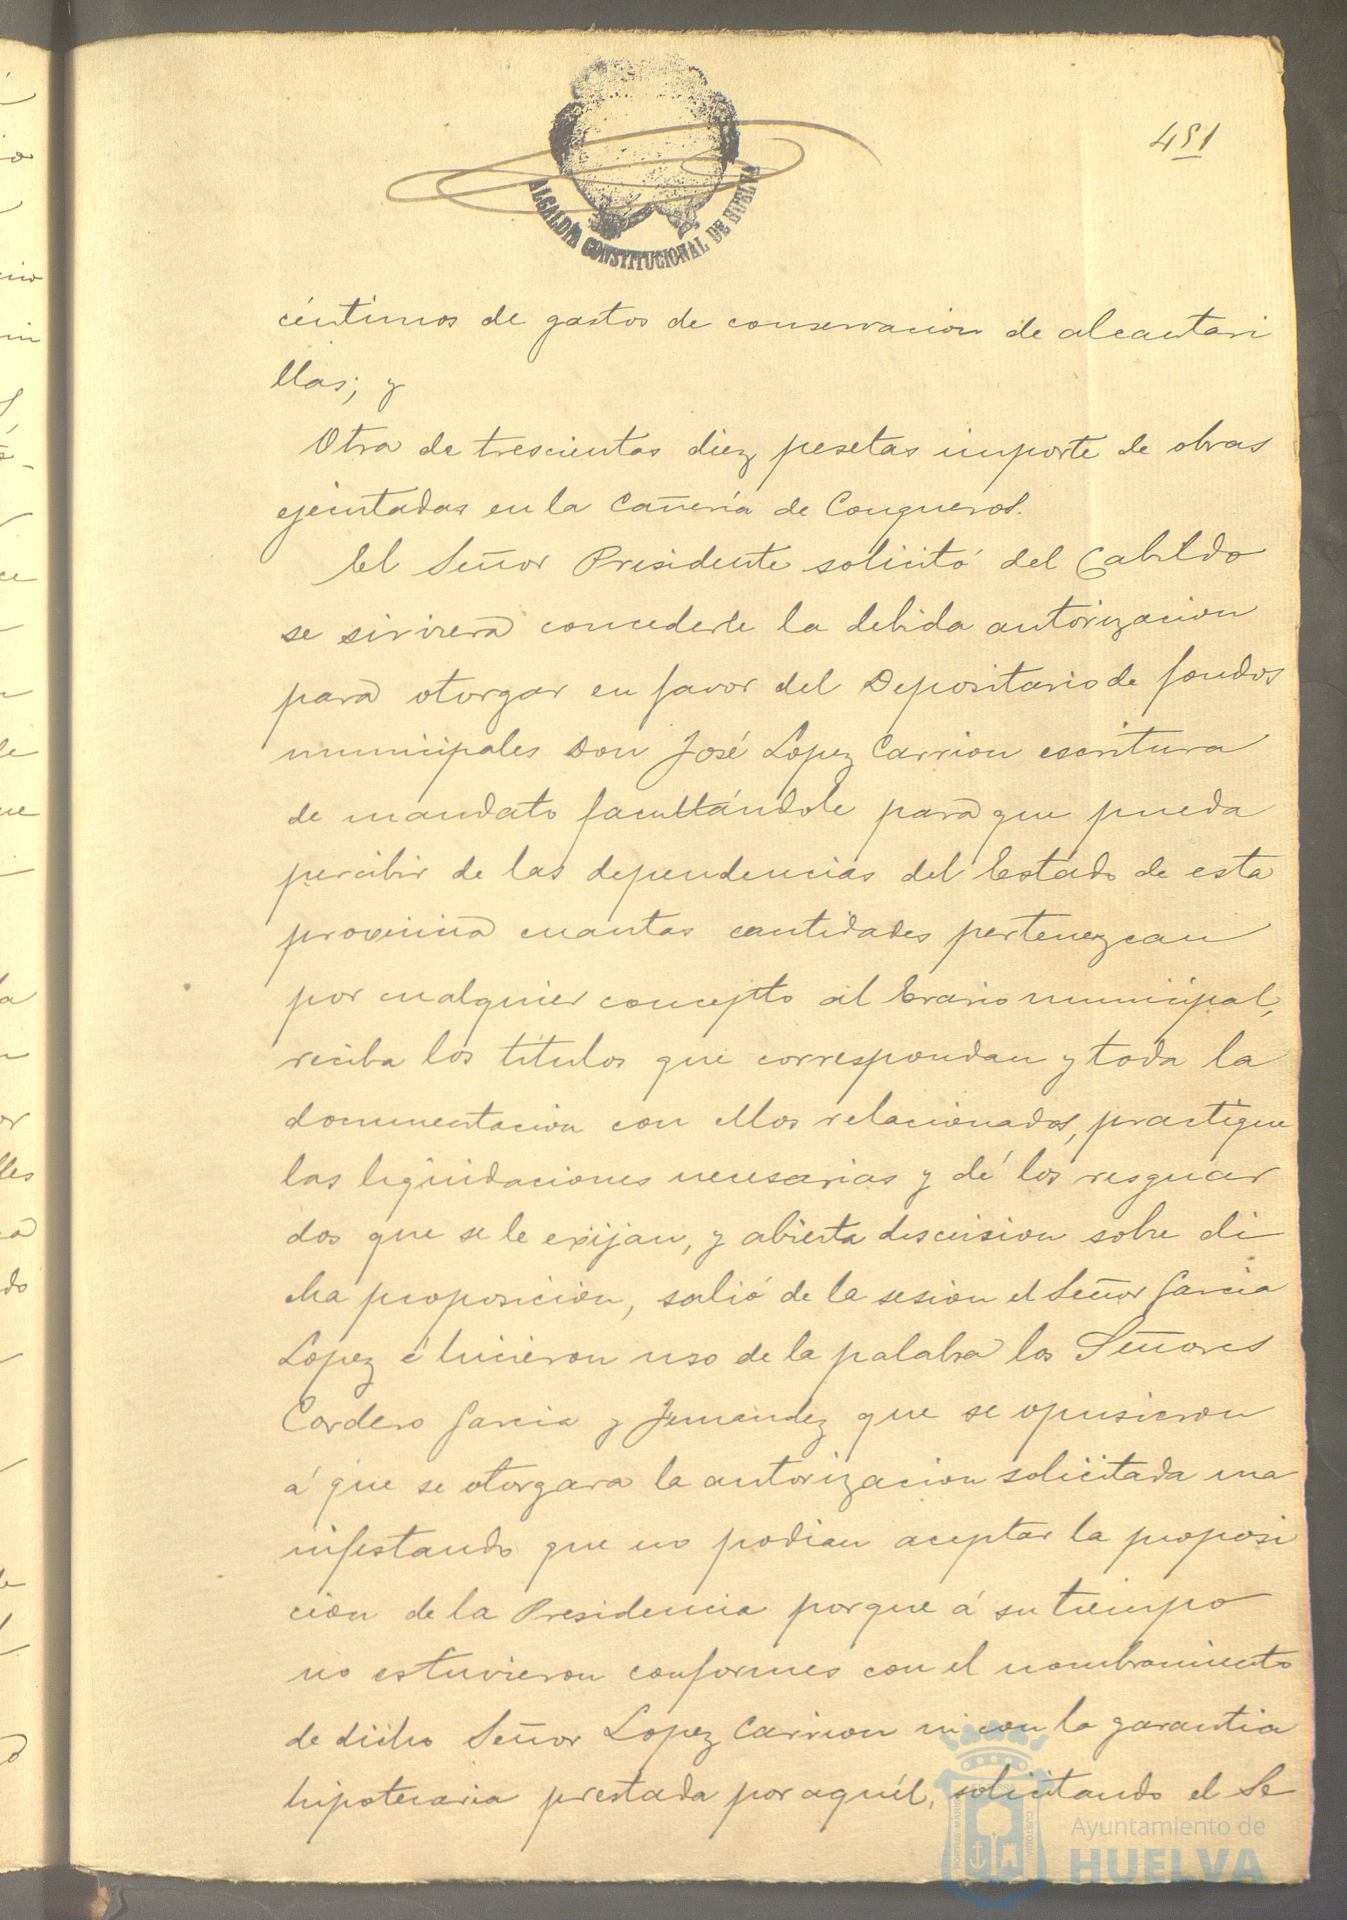 451
ALCALDIA CONSTITUCIONAL DE HUELVA
céntimos de gastos de conservacion de alcantari
llas; y
Otra de trescientas diez pesetas importe de obras
ejecutadas en la Cañería de Conqueros.
El Señor Presidente solicitó del Cabildo
se sirviera concederle la debida autorizacion
para otorgar en favor del Depositario de fondos
municipales Don José Lopez Carrion escritura
de mandato facultándole para que pueda
percibir de las dependencias del Estado de esta
provincia cuantas cantidades pertenezcan
por cualquier concepto al Erario municipal,
reciba los títulos que correspondan y toda la
documentacion con ellos relacionados, practique
las liquidaciones necesarias y dé los resguar
dos que se le exijan, y abierta discusion sobre di
cha proposicion, salió de la sesion el Señor Garcia
Lopez é hicieron uso de la palabra los Señores
Cordero Garcia y Jimenez que se opusieron
á que se otorgara la autorizacion solicitada ma
nifestando que no podian aceptar la proposi
cion de la Presidencia porque á su tiempo
no estuvieron conformes con el nombramiento
de dicho Señor Lopez Carrion ni con la garantia
hipotecaria prestada por aquél, solicitando el Se
Ayuntamiento de
HUELVA